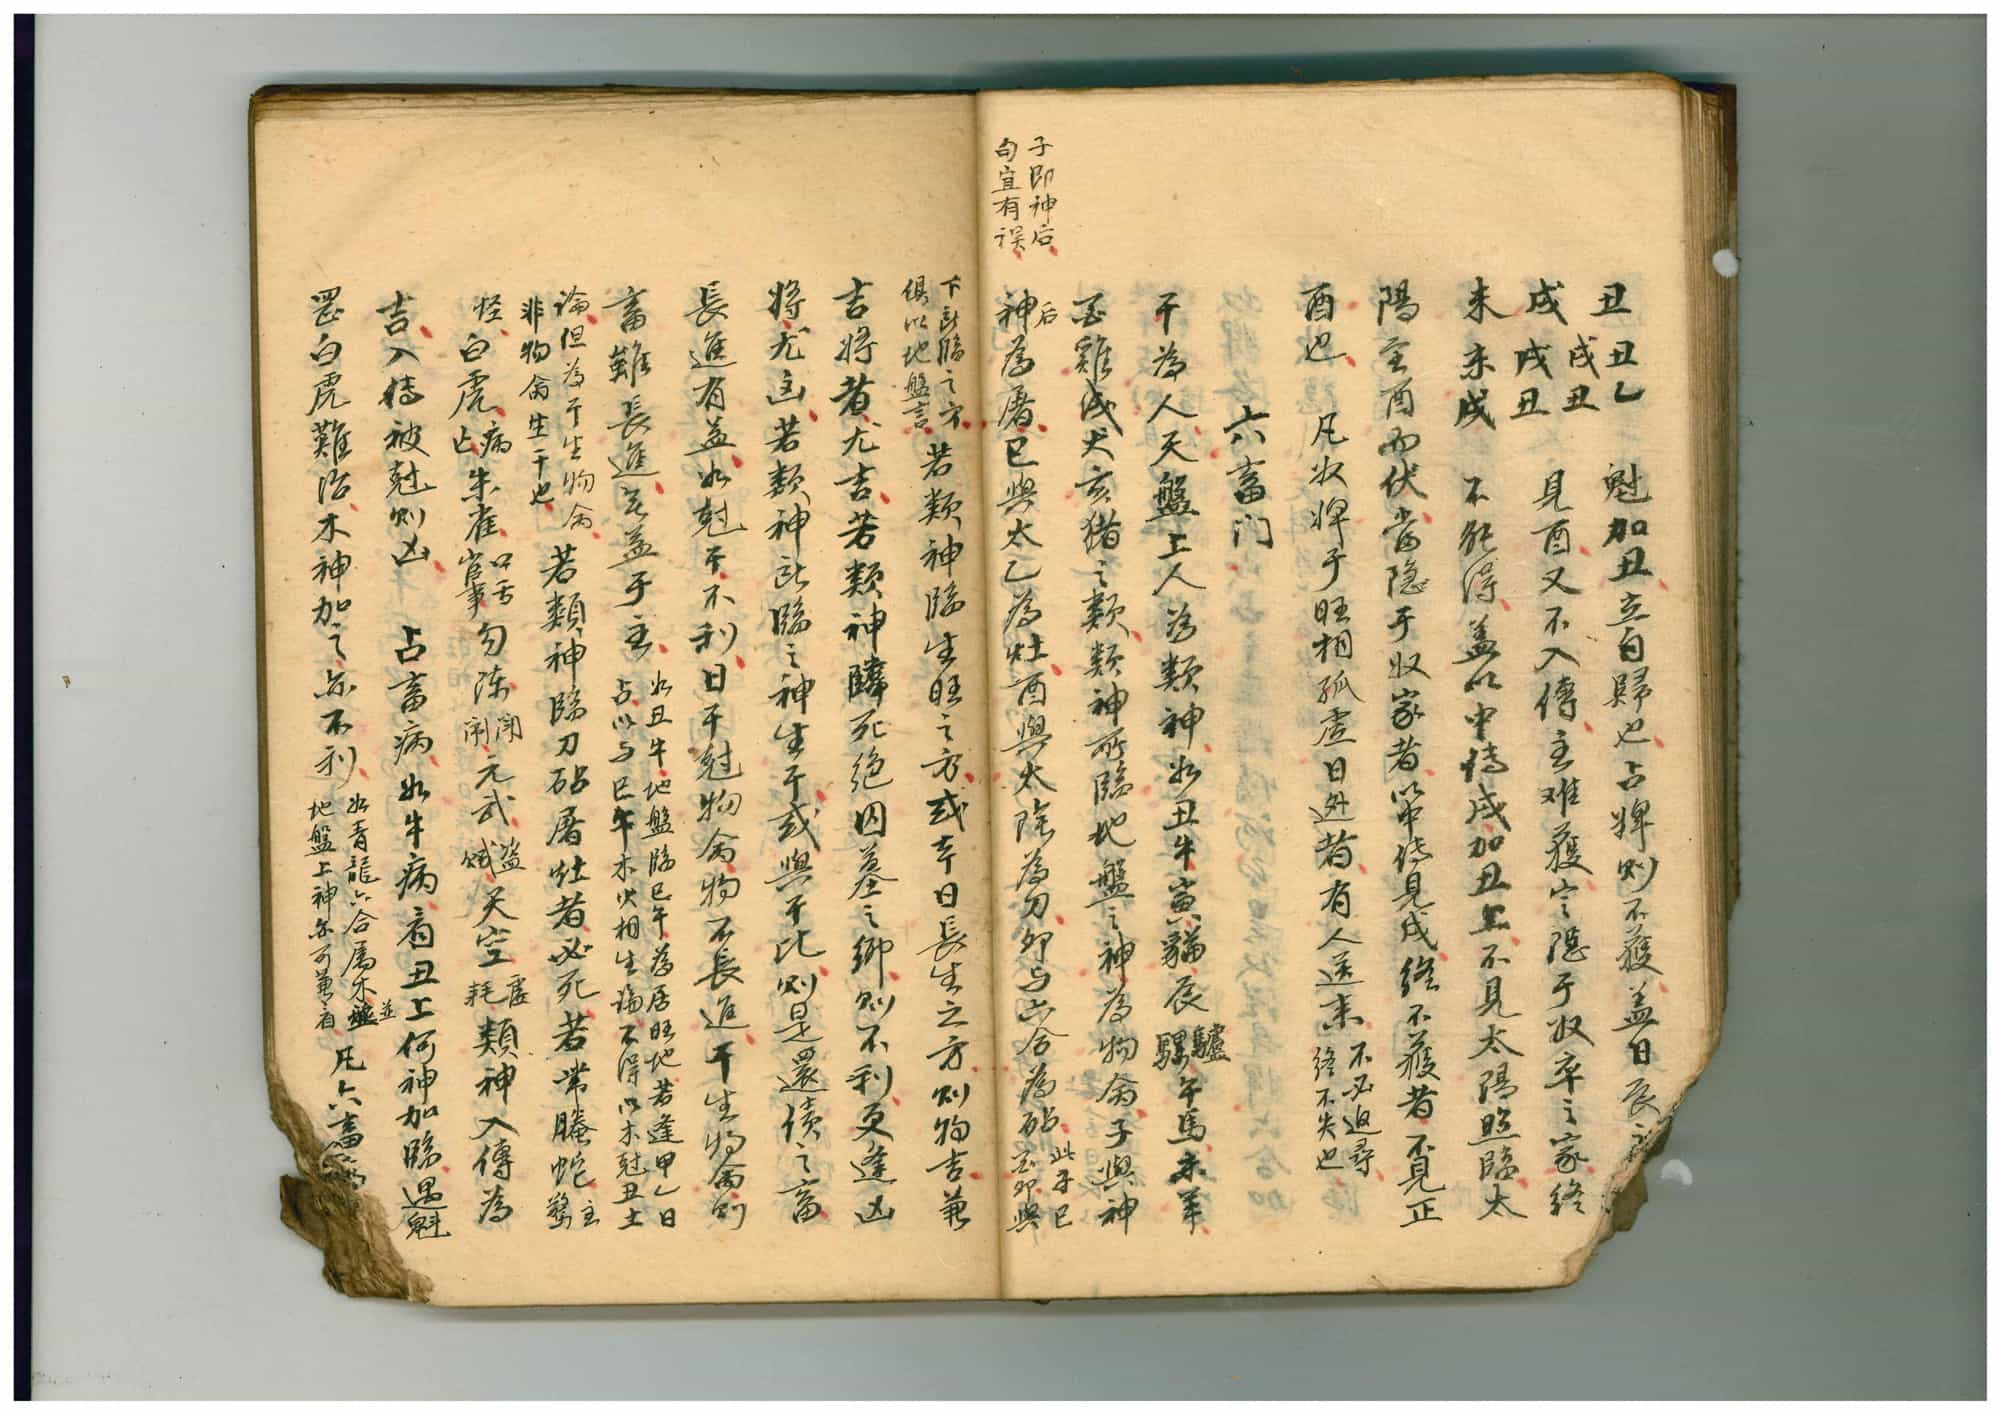 子即神后
句宜有误
丑丑乙 魁加丑立自歸也占婢则不獲盖日辰
戌戌丑
戌丑 見酉又不入傳主难獲定隱于奴卒之家終
未未戌 不能得盖以中傳戌加丑上不見太陽照臨太
陽至酉而伏當隐于奴家者以中傳見戌終不獲者不見正
酉也 凡奴婢于旺相孤虚日逃者有人送来
不必追尋
終不失也
六畜门
干為人天盤上人為類神如丑牛寅貓辰驢騾午馬未羊
酉雞戌犬亥猪之類類神所臨地盤之神為物禽子與神
神后為屠巳與太乙為灶酉與太陰為刀卯与六合為砧
此子巳
酉卯與
下所臨之字
俱以地盤言
若類神臨生旺之方或本日長生之方则物吉兼
吉将者尤吉若類神臨死絶囚墓之鄉则不利更逢凶
将尤凶若類神所臨之神生干或與干比则是還债之畜
長進有益如尅干不利日干尅物禽物不長進干生物禽则
畜雖長進无益于主
如丑牛地盤臨巳午為居旺地若逢甲乙日
占以与巳午木火相生論不得以木尅丑土
論但為干生物禽
非物禽生干也
若類神臨刀砧屠灶者必死若带騰蛇主驚
怪白虎病亡朱雀口舌官事勾陳闹元武盗贼天空虚耗類神入傳為
吉入傳被尅则凶 占畜病如牛病看丑上何神加臨遇魁
罡白虎難治木神加之亦不利
如青龍六合属木並
地盤上神亦可兼看
凡六畜